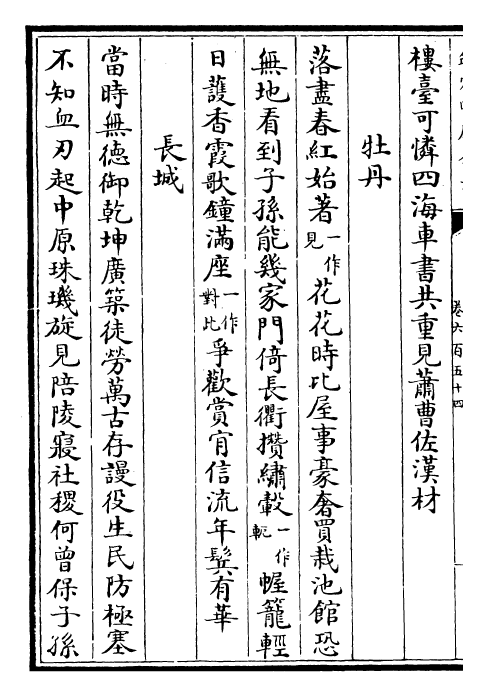 卷六百五十四
樓臺可憐四海車書共重見蕭曹佐漢材
牡丹
落盡春紅始著一作見花花時比屋事豪奢買栽池館恐
無地看到子孫能幾家門倚長衢攢繡轂一作軛幄籠輕
日護香霞歌鐘滿座一作對此爭歡賞肯信流年鬢有華
長城
當時無德御乾坤廣築徒勞萬古存謾役生民防極塞
不知血刃起中原珠璣旋見陪陵寢社稷何曾保子孫